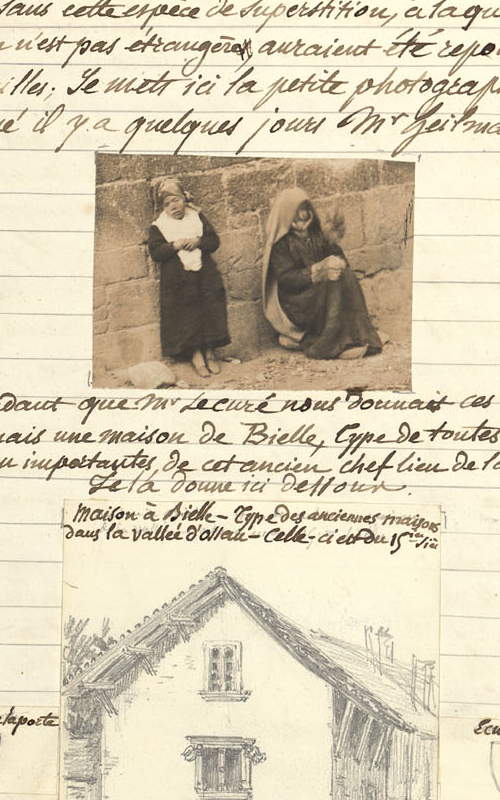 sans cette espèce de superstition, à laque
n'est pas étrangère, auraient été repo
illes; Je mets ici la petite photograp
é il y a quelques jours Mr Geilma
dant que Mr Le curé nous donnait ces
ais une maison de Bielle, Type de toutes
u importantes, de cet ancien chef lieu de la
Je la donne ici dessous.
Maison à Bielle - Type des anciennes maisons
dans la vallée d'ossau - Celle-ci est du 15ième Siè
laporte
Ecu